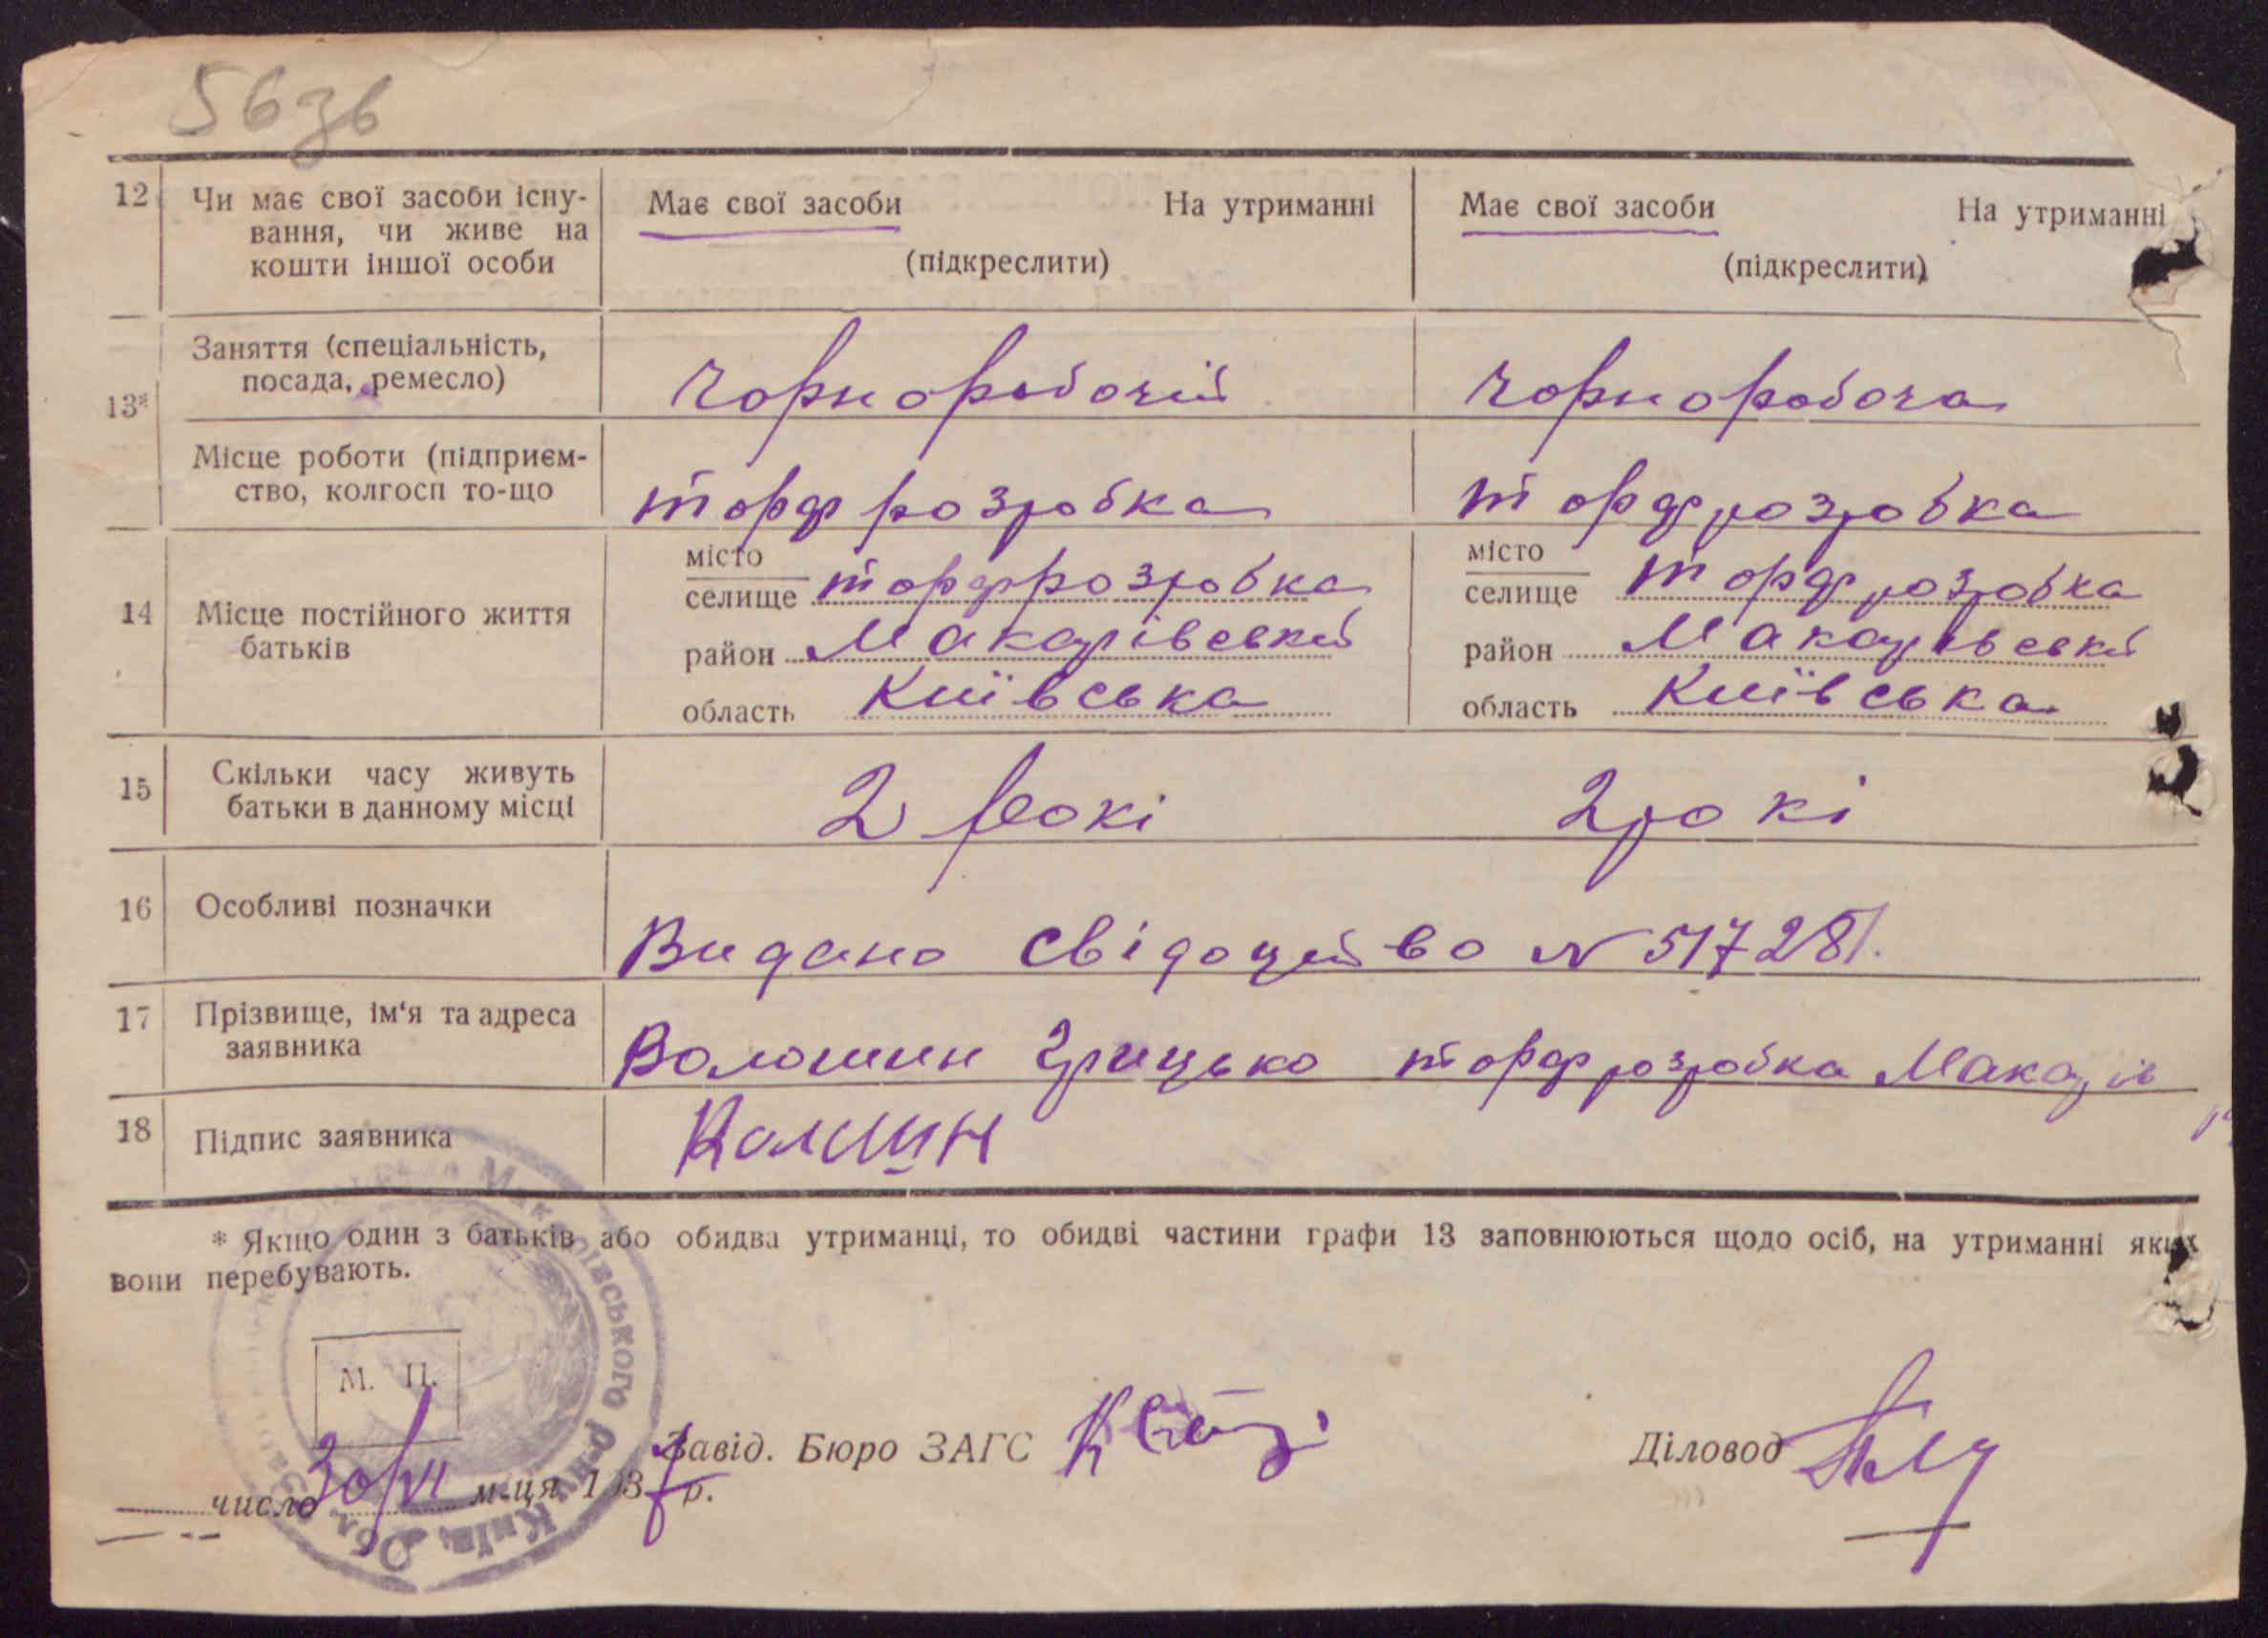 56зв
12 Чи має свої засоби існу- Має свої засоби На утриманні Має свої засоби На утриманні
вання, чи живе на
кошти іншої особи (підкреслити) (підкреслити)
Заняття (спеціальність,
посада, ремесло) Чорноробочий Чорноробоча
13*
Місце роботи (підприєм-
ство, колгосп то-що торфрозробка торфрозробка
місто місто
14 Місце постійного життя селище торфрозробка селище торфрозробка
батьків район Макарівский район Макарівскй
область Київська область Київська
15 Скільки часу живуть
батьки в данному місці 2 рокі 2 рокі
16 Особливі позначки
Видано свідоцтво N 517281.
17 Прізвище, ім'я та адреса
заявника Волошин Грицько торфрозробка Макарів
18 Підпис заявника Волишн
* Якщо один з батьків або обидва утриманці, то обидві частини графи 13 заповнюються щодо осіб, на утриманні яких
вони перебувають.
М. П.
Завід. Бюро ЗАГС Діловод
число 30/VI м-ця 1937 р.
Макарівського Р-ну Київ. Обл.